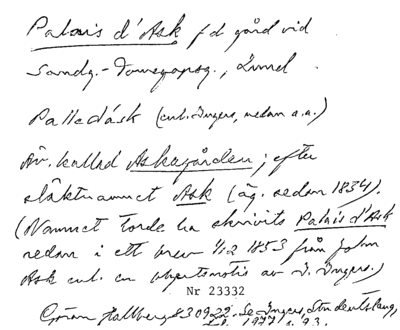 Palais d'Ask f d gård vid
Sandg.-Tomegapsg., Lund
Palledásk (enl. Ingers, nedan a.a.)
Äv. kallad Askagården; efter
släktnamnet Ask (äg. sedan 1834).
(Namnet torde ha skrivits Palais d'Ask
redan i ett brev 4/12 1853 från John
Ask enl. en av I. Ingers.)
Nr 23332
Göran Hallberg 830922. Se Ingers, Studentslang,
1977 s. 93.